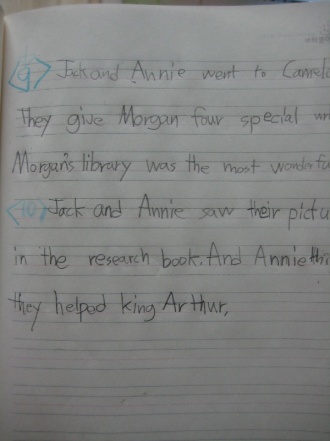 <9> Jack and Annie went to Camelo
They give Morgan four special wri
Morgan's library was the most wonderfu
<10> Jack and Annie saw their pictu
in the research book. And Annie thi
they helped king Arthur.